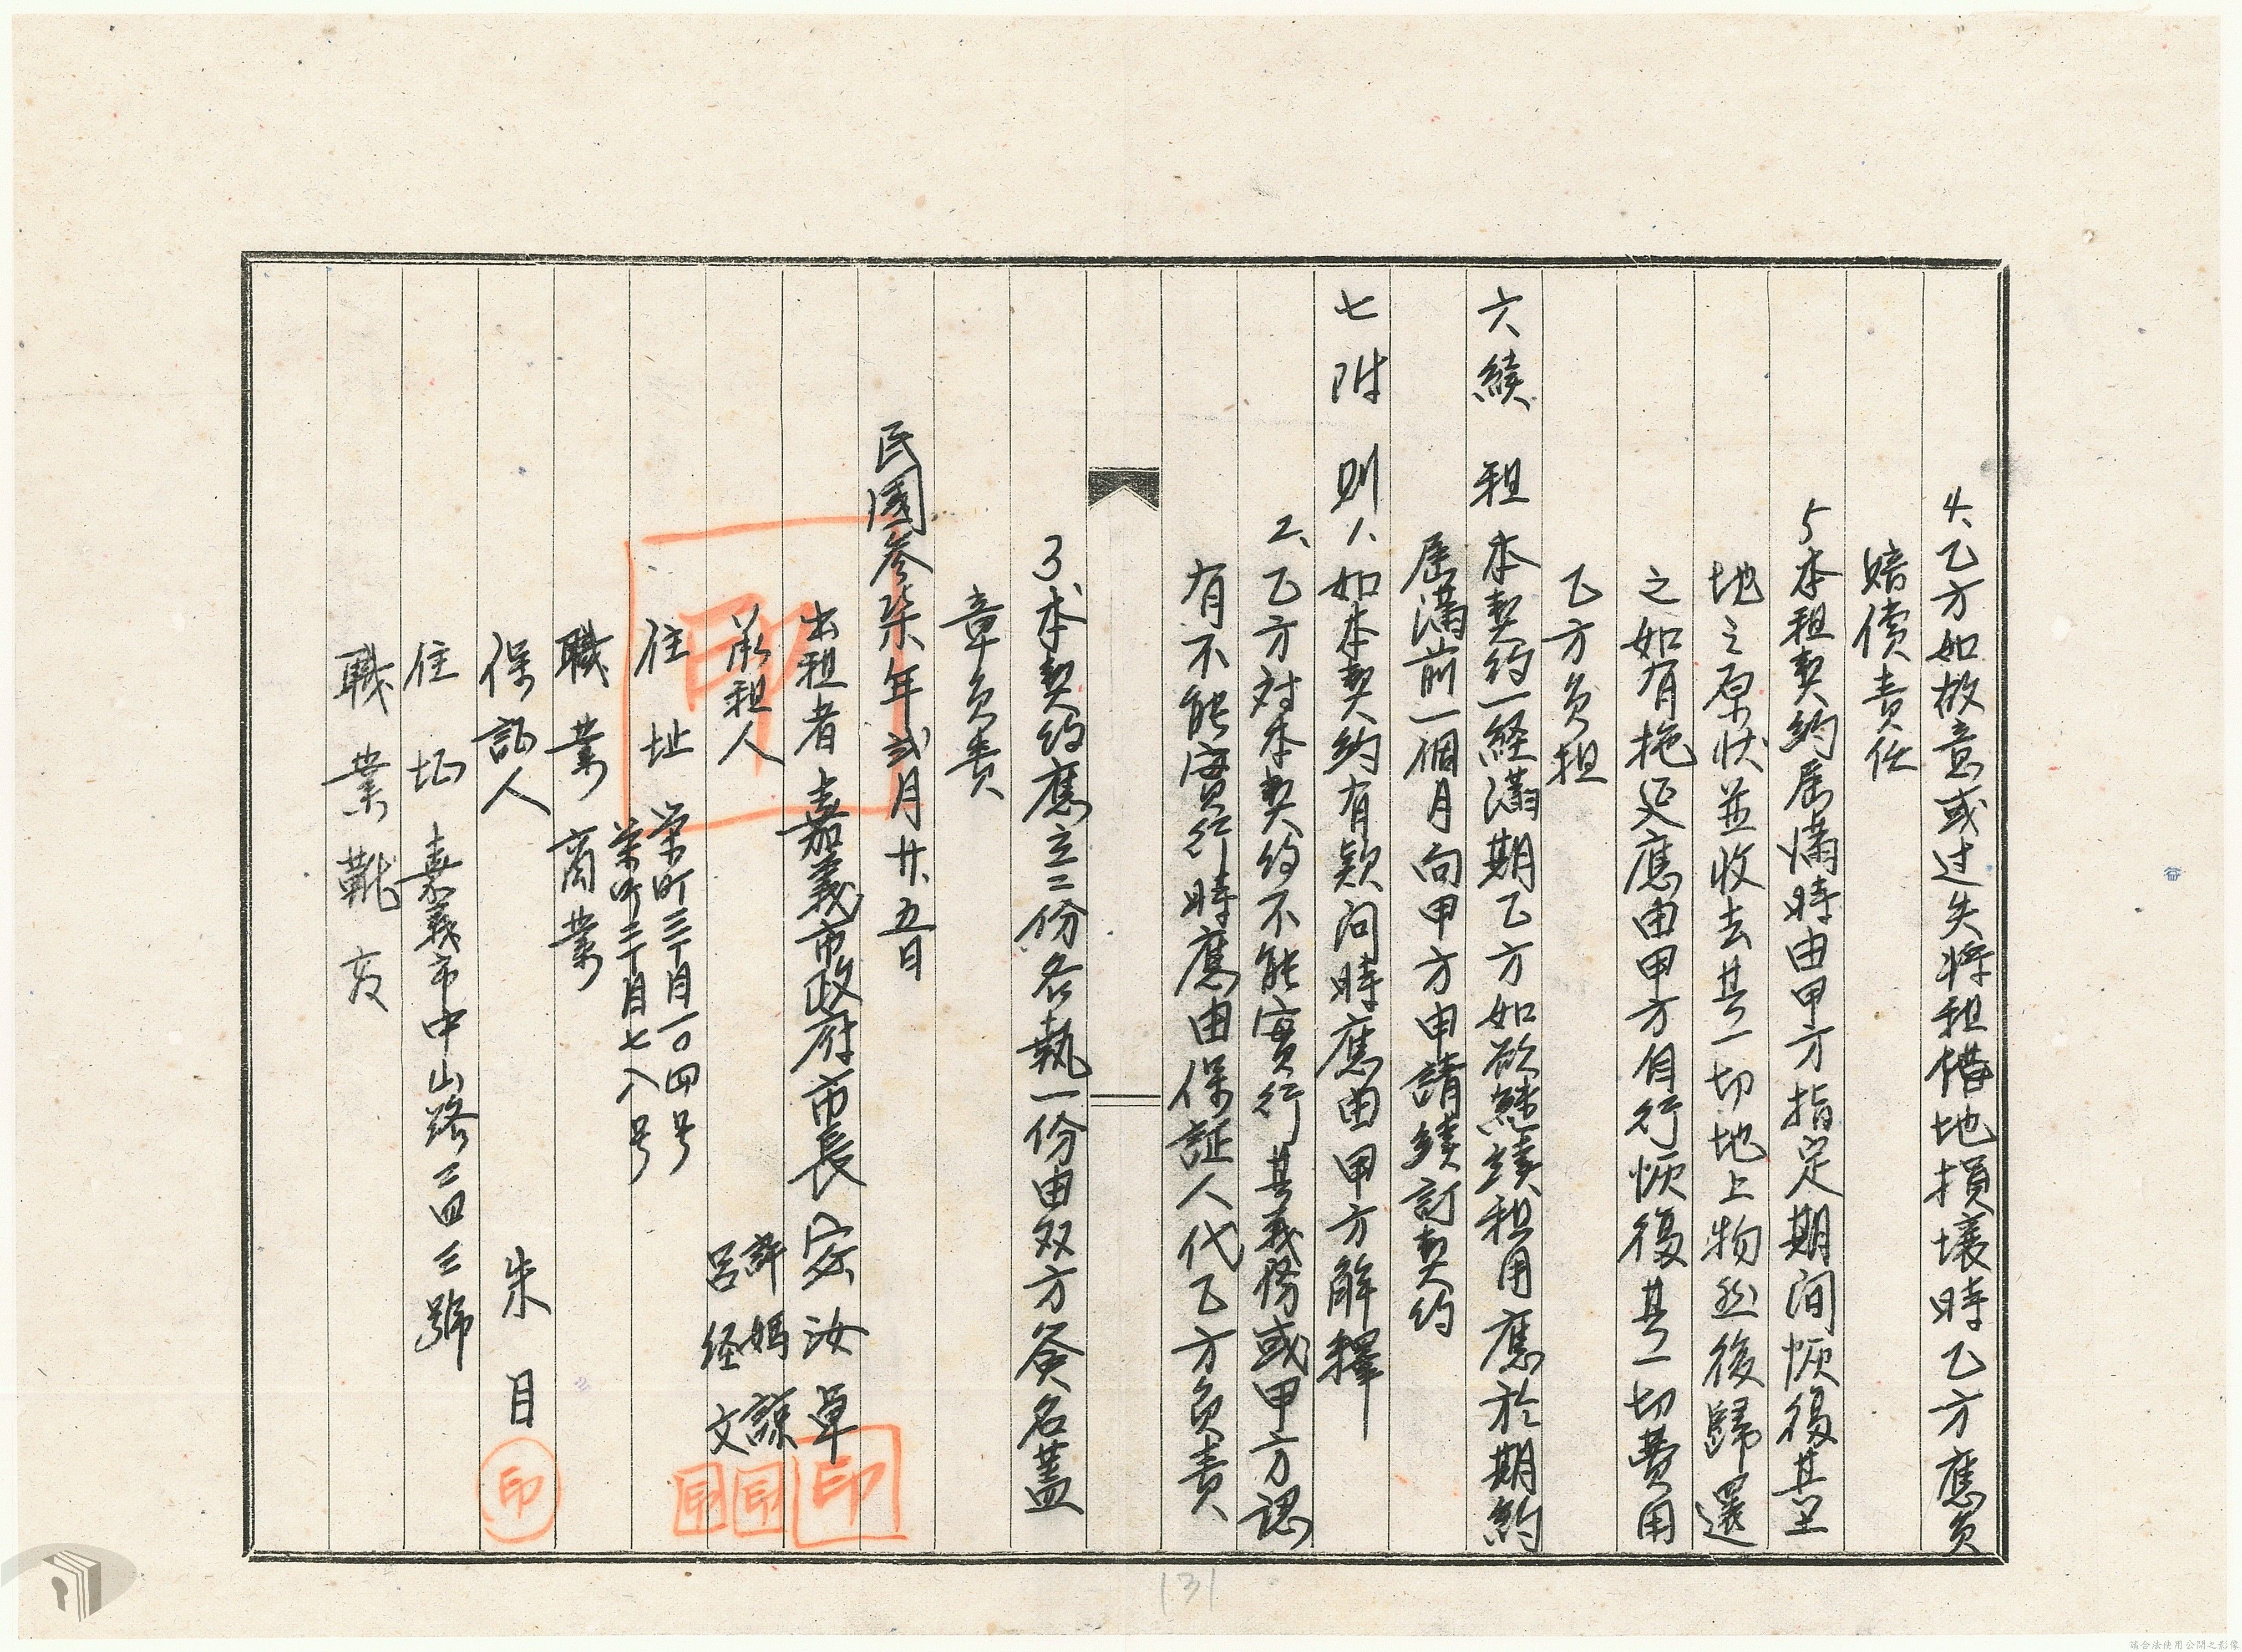 4、乙方如故意或过失将租借地損壞時乙方應负
賠償責任
5本租契約屆滿時由甲方指定期间恢復其土
地之原状並收去其一切地上物然後歸還
之如有拖延應由甲方自行恢復其一切費用
乙方负担
六續 租 本契约一経滿期乙方如欲継續租用應於期約
屆滿前一個月向甲方申請續訂契约
七附 則1、如本契约有欵问時應由甲方解釋
2、乙方対本契约不能實行其義務或甲方認
有不能實行時應由保証人代乙方负責
3、本契约應立二份各執一份由双方簽名蓋
章负责
民國參柒年弍月廿五日
出租者 嘉義市政府市長 宓汝卓 印
承租人 許媽諒 印
呂経文 印
印
住址 栄町三丁目一〇四号
栄町二丁目七八号
職業 商業
保証人 朱目 印
住址 嘉義市中山路二四三號
職業 靴商
131
請合法使用公開之影像